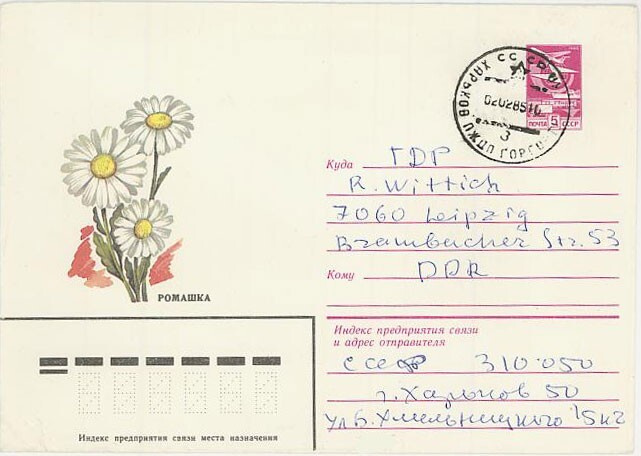 ХАРЬКОВ СССР
0202851
3
ПОЧТА 5 СССР
Куда ГДР
R. Wittich
7060 Leipzig
Brambacher Str. 53
Кому DDR
РОМАШКА
Индекс предприятия связи
и адрес отправителя
СССР 310050
г. Харьков 50
ул Б. Хмельницкого
Индекс предприятия связи места назначения